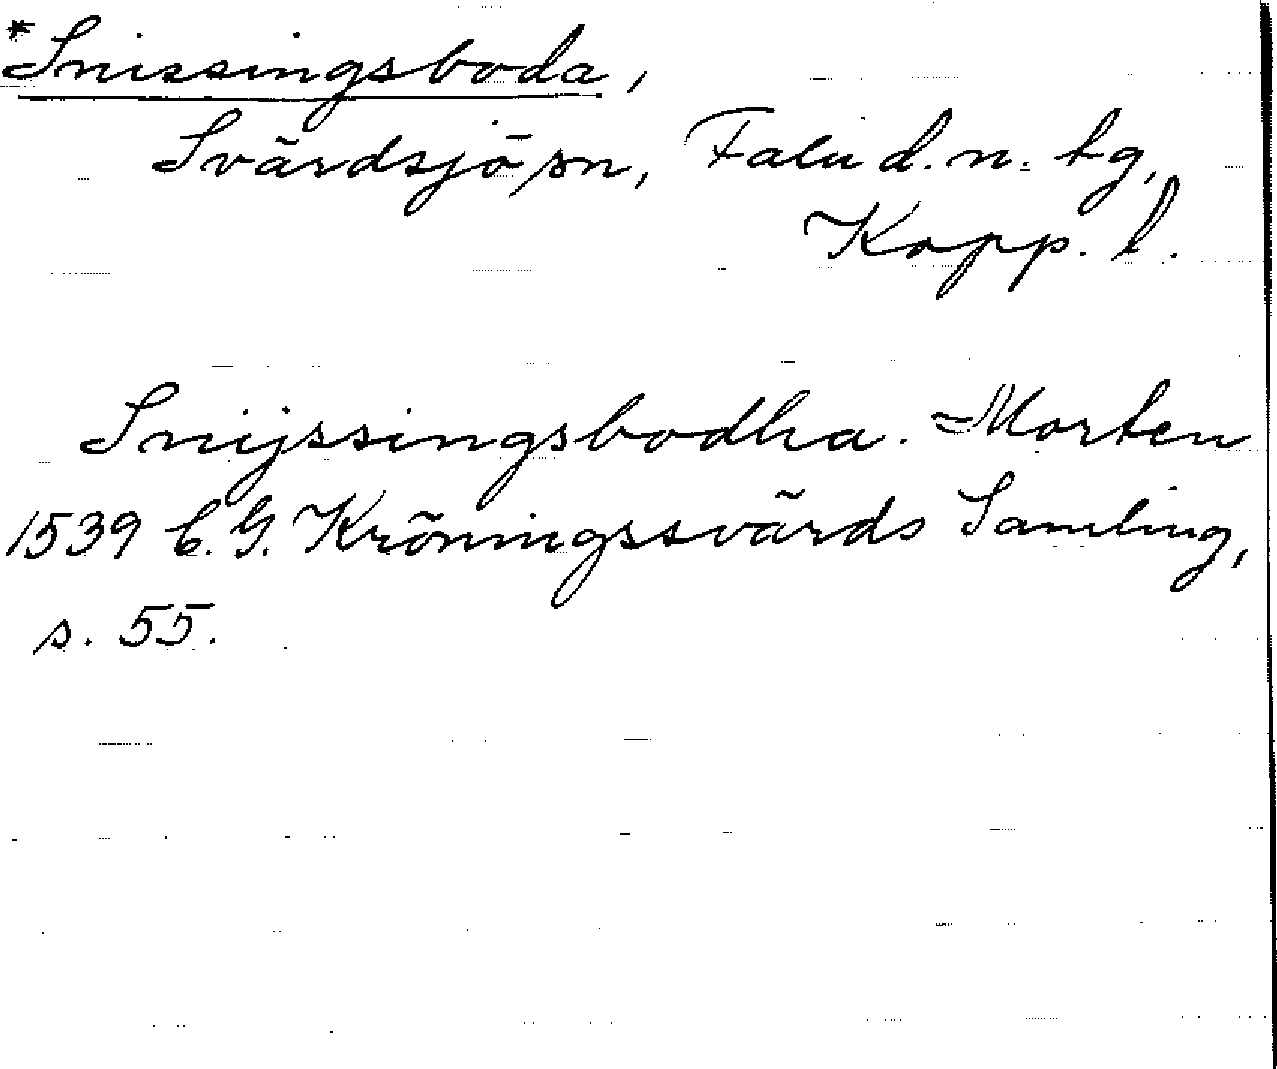 *Snissingsboda,
Svärdsjö sn, Falu d. n. tg,
Kopp. l.
Snijssingsbodha. Morten
1539 C. G. Kröningssvärds Samling,
s. 55.